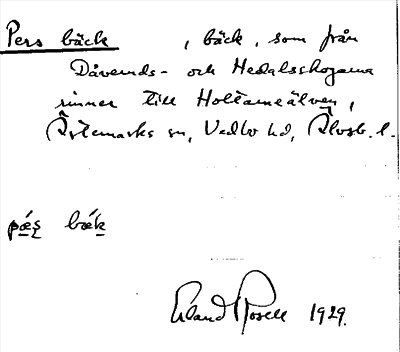 Pers bäck , bäck, som från
Dåveruds- och Hedalsskogarna
rinner till Holtaneälven,
Ärtemarks sn, Vedbo hd, Älvsb. l.
pǽʂ bæ̀k
Erland Rosell 1929.